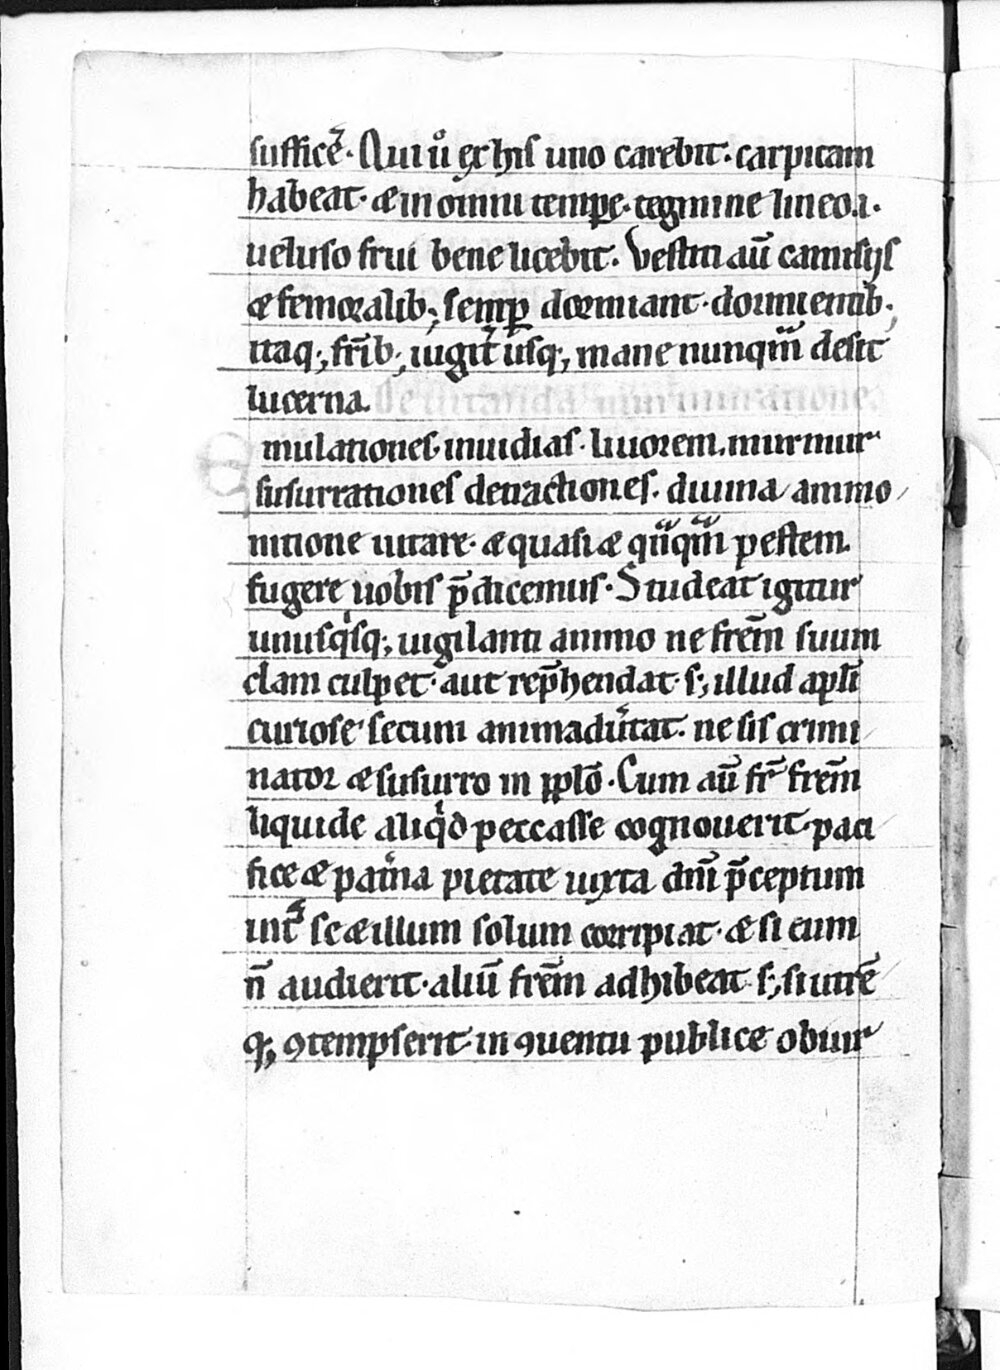 sufficẽ. Qui ů ex his uno carebit. carpitam
habeat. æ in omni tempe. tegmine lineo .i.
ueluso frui bene licebit. Vestiti aū camisijs
æ femoralib; semp dormiant. dormientib;
itaq; fr̄ib; iugit̾ usq; mane nunqm̄ desit
lucerna.
De uitanda murmuratione.
Emulationes inuidias. liuorem. murmur
susurrationes detractiones. diuina ammo
nitione uitare. æ quasi æ qm̄qm̄ pestem
fugere uobis p̄dicemus. Studeat igitur
unusqisq; uigilanti animo ne frēm suum
clam culpet. aut rep̄hendat. s; illud apl̄i
curiose secum animadu̾tat. ne sis crimi
nator æ susurro in pplō. Cum aū fr̄ frēm
liquide aliqid peccasse cognouerit. paci
fice æ pat̾na pietate iuxta dn̄i p̄ceptum
int̾ se æ illum solum corripiat. æ si eum
n̄ audierit. aliū frēm adhibeat s; si utrē
q; ꝯtempserit in ꝯuentu publice obiur